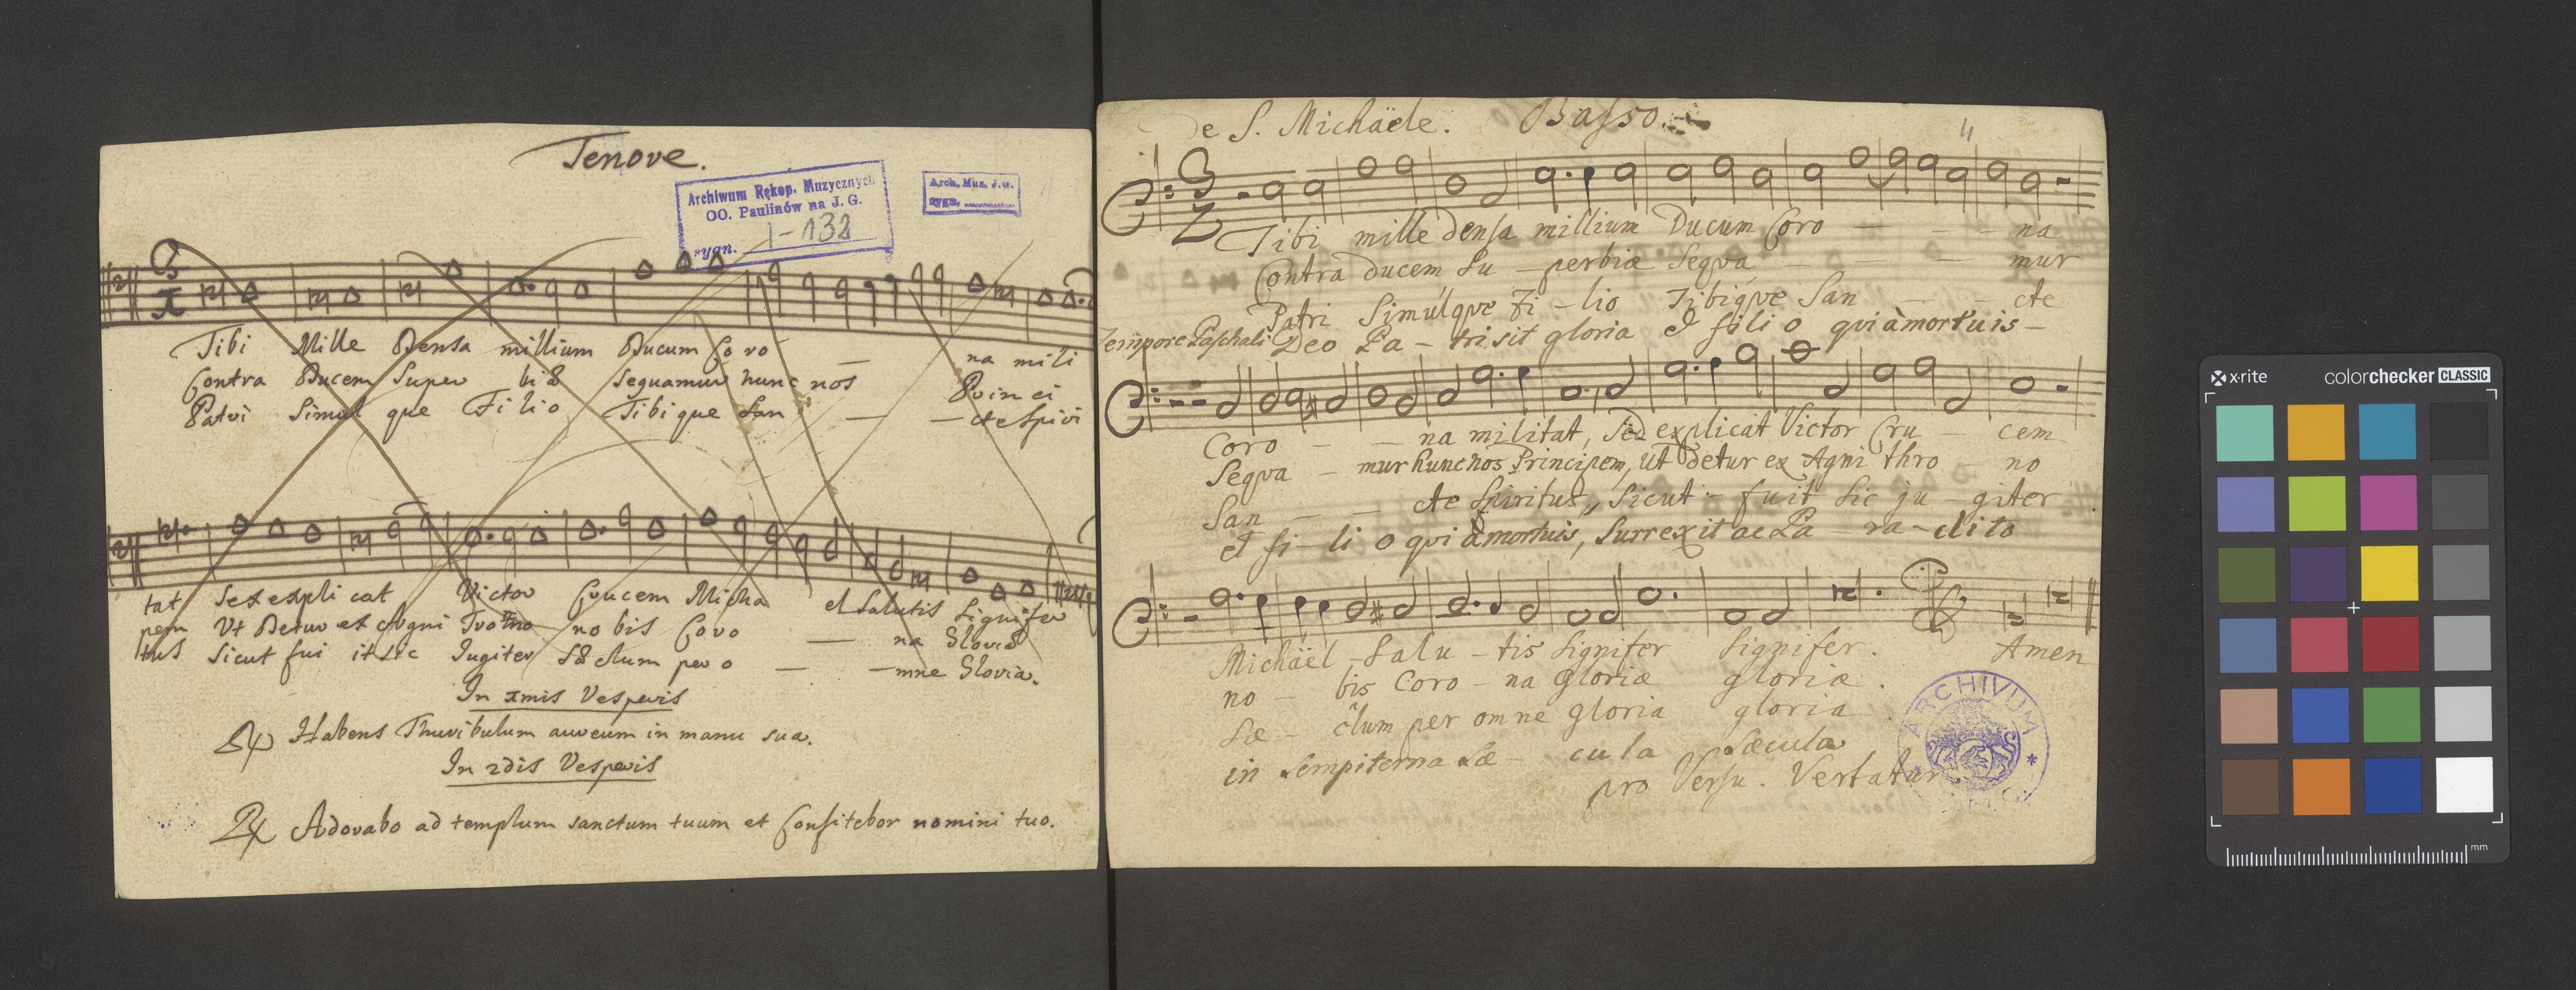 Tenore.
Archiwum Rękop. Muzycznych
OO. Paulinów na J. G.
sygn. I-132
Arch. Muz. J.G.
sygn.
Tibi Mille Densa millium Ducum Coro — na mili
Contra Ducem Super biæ sequamur hunc nos Princi
Patri Simul que Filio Tibique San — — cte Spiri
tat Sex expli cat Victor Crucem Micha el Salutis Signifer
pem Ut Detur ex Agni Tro no bis Coro — na Gloriæ
tus Sicut fui it sic Jugiter Sæ clum per o — — mne Gloria.
In 1mis Vesperis
Habens Thuribulum aureum in manu sua.
In 2dis Vesperis
Adorabo ad templum sanctum tuum et Confitebor nomini tuo.
De S. Michäele. Basso.
4
Tibi mille densa millium Ducum Coro — — — na
Contra ducem Su — perbiæ Seqva — — — mur
Patri Simulqve Fi – lio Tibiqve San — — cte
Tempore Paschali Deo Pa – tri sit gloria et filio qui à mortuis –
Coro — — na militat, Sed explicat Victor Cru — cem
Seqva — mur hunc nos Principem, Ut Detur ex Agni thro — no
San — — cte Spiritus, Sicut – fuit Sic ju – giter
et fi – li o qvi à mortuis, Surrexit ac Pa — ra – clito
Michäel – Salu – tis Signifer Signifer. Amen
no – bis Coro – na Gloriæ gloriæ.
Sæ – clum per omne gloria gloria
in Sempiterna Sæ – cula Sæcula
pro Versu. Vertatur
ARCHIVUM
x-rite
colorchecker CLASSIC
mm